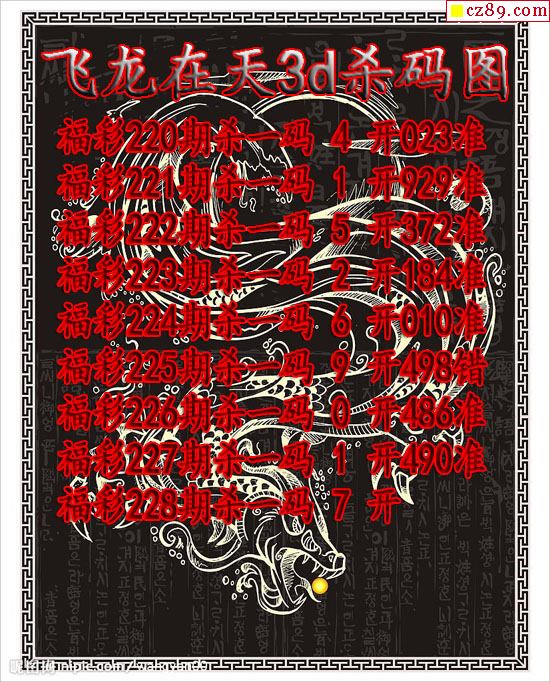 cz89.com
飞龙在天3d杀码图
福彩220期杀一码 4 开023准
福彩221期杀一码 1 开929准
福彩222期杀一码 5 开372准
福彩223期杀一码 2 开184准
福彩224期杀一码 6 开010准
福彩225期杀一码 9 开498错
福彩226期杀一码 0 开486准
福彩227期杀一码 1 开490准
福彩228期杀一码 7 开